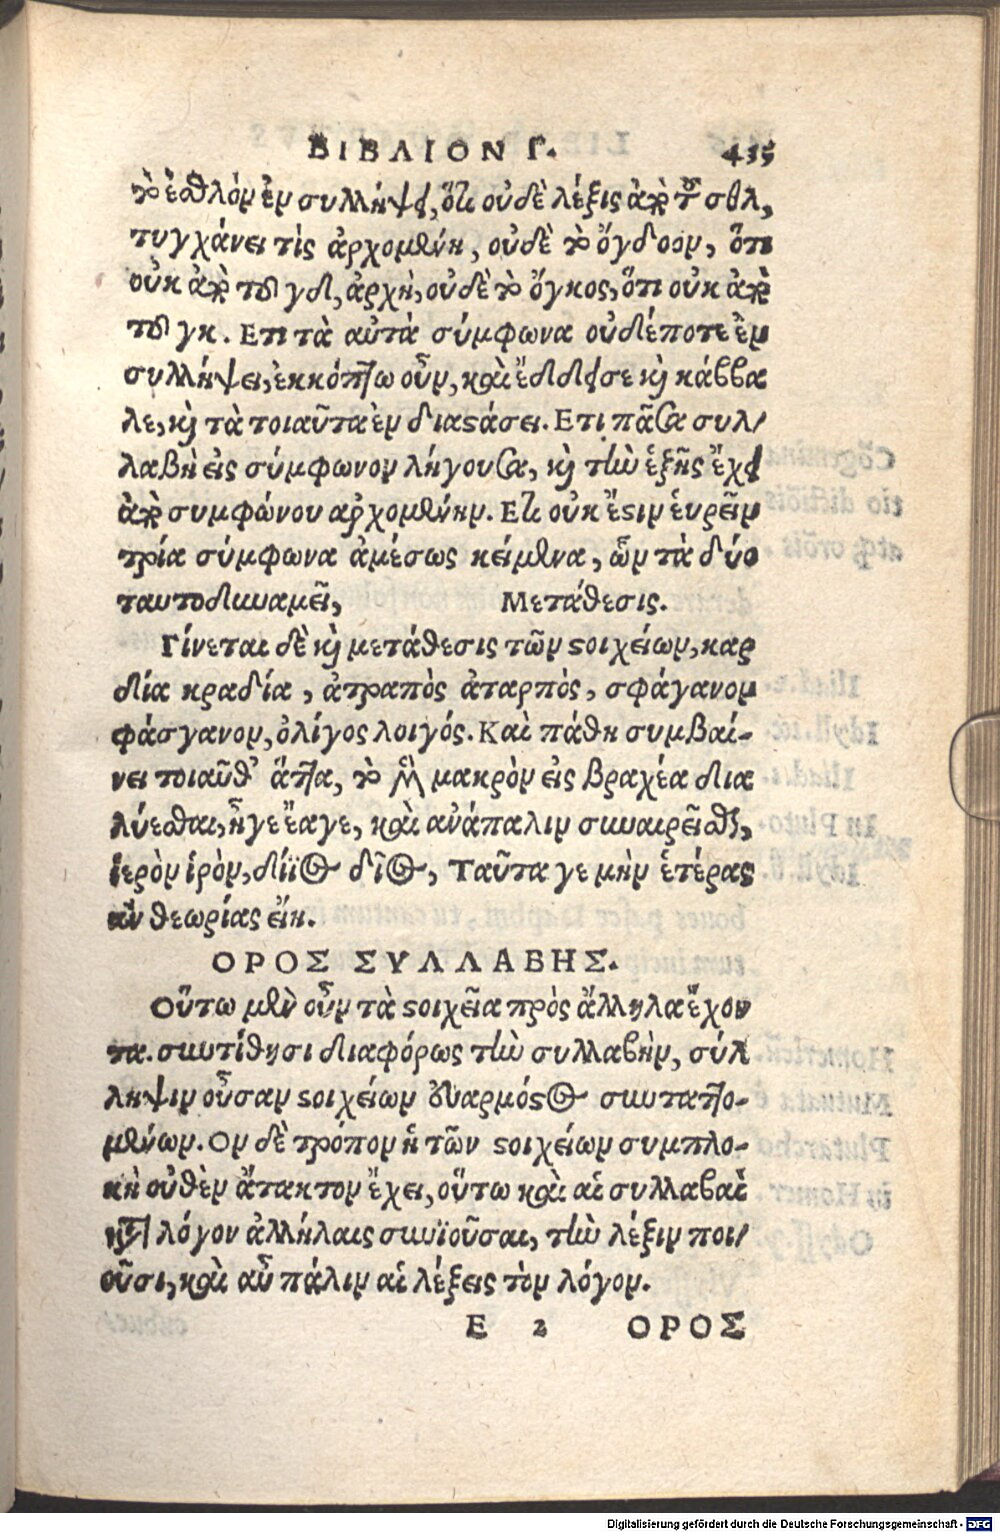 ΒΙΒΛΙΟΝ Γ. 435
τὸ ἐσθλὸν ἐν συλλήψει, ὅτι οὐδὲ λέξις ἀπὸ τοῦ σθλ,
τυγχάνει τὶς ἀρχομένη, οὐδὲ τὸ ὄγδοον, ὅτι
οὐκ ἀπὸ τοῦ γδ, ἀρχὴ, οὐδὲ τὸ ὄγκος, ὅτι οὐκ ἀπὸ
τοῦ γκ. Ετι τὰ αὐτὰ σύμφωνα οὐδέποτε ἐν
συλλήψει, ἐκκόπτω οὖν, καὶ ἔδδεισε καὶ κάββα
λε, καὶ τὰ τοιαῦτα ἐν διαστάσει. Ετι πᾶσα συλ/
λαβὴ εἰς σύμφωνον λήγουσα, καὶ τὴν ἑξῆς ἔχει
ἀπὸ συμφώνου ἀρχομένην. Ετι οὐκ ἔστιν ἑυρεῖν
τρία σύμφωνα ἀμέσως κείμενα, ὧν τὰ δύο
ταυτοδυναμεῖ, Μετάθεσις.
Γίνεται δὲ καὶ μετάθεσις τῶν στοιχείων, καρ
δία κραδία, ἀτραπὸς ἀταρπὸς, σφάγανον
φάσγανον, ὀλίγος λοιγός. Καὶ πάθη συμβαί-
νει τοιαῦθ' ἅττα, τὸ μὲν μακρὸν εἰς βραχέα δια
λύεσθαι, ἦγε ἔαγε, καὶ ἀνάπαλιν συναιρεῖσθαι,
ἱερὸν ἱρὸν, δίϊος δῖος, Ταῦτα γε μὴν ἑτέρας
ἂν θεωρίας εἴη.
ΟΡΟΣ ΣΥΛΛΑΒΗΣ.
Οὕτω μὲν οὖν τὰ στοιχεῖα πρὸς ἄλληλα ἔχον
τα. συντίθησι διαφόρως τὴν συλλαβὴν, σύλ
ληψιν οὖσαν στοιχείων ἐναρμόστως συνταττο-
μένων. Ον δὲ τρόπον ἡ τῶν στοιχείων συμπλο-
κὴ οὐθὲν ἄτακτον ἔχει, οὕτω καὶ αἱ συλλαβαὶ
κατὰ λόγον ἀλλήλαις συνϊοῦσαι, τὴν λέξιν ποι/
οῦσι, καὶ αὖ πάλιν αἱ λέξεις τὸν λόγον.
E 2 ΟΡΟΣ
Digitalisierung gefördert durch die Deutsche Forschungsgemeinschaft - DFG